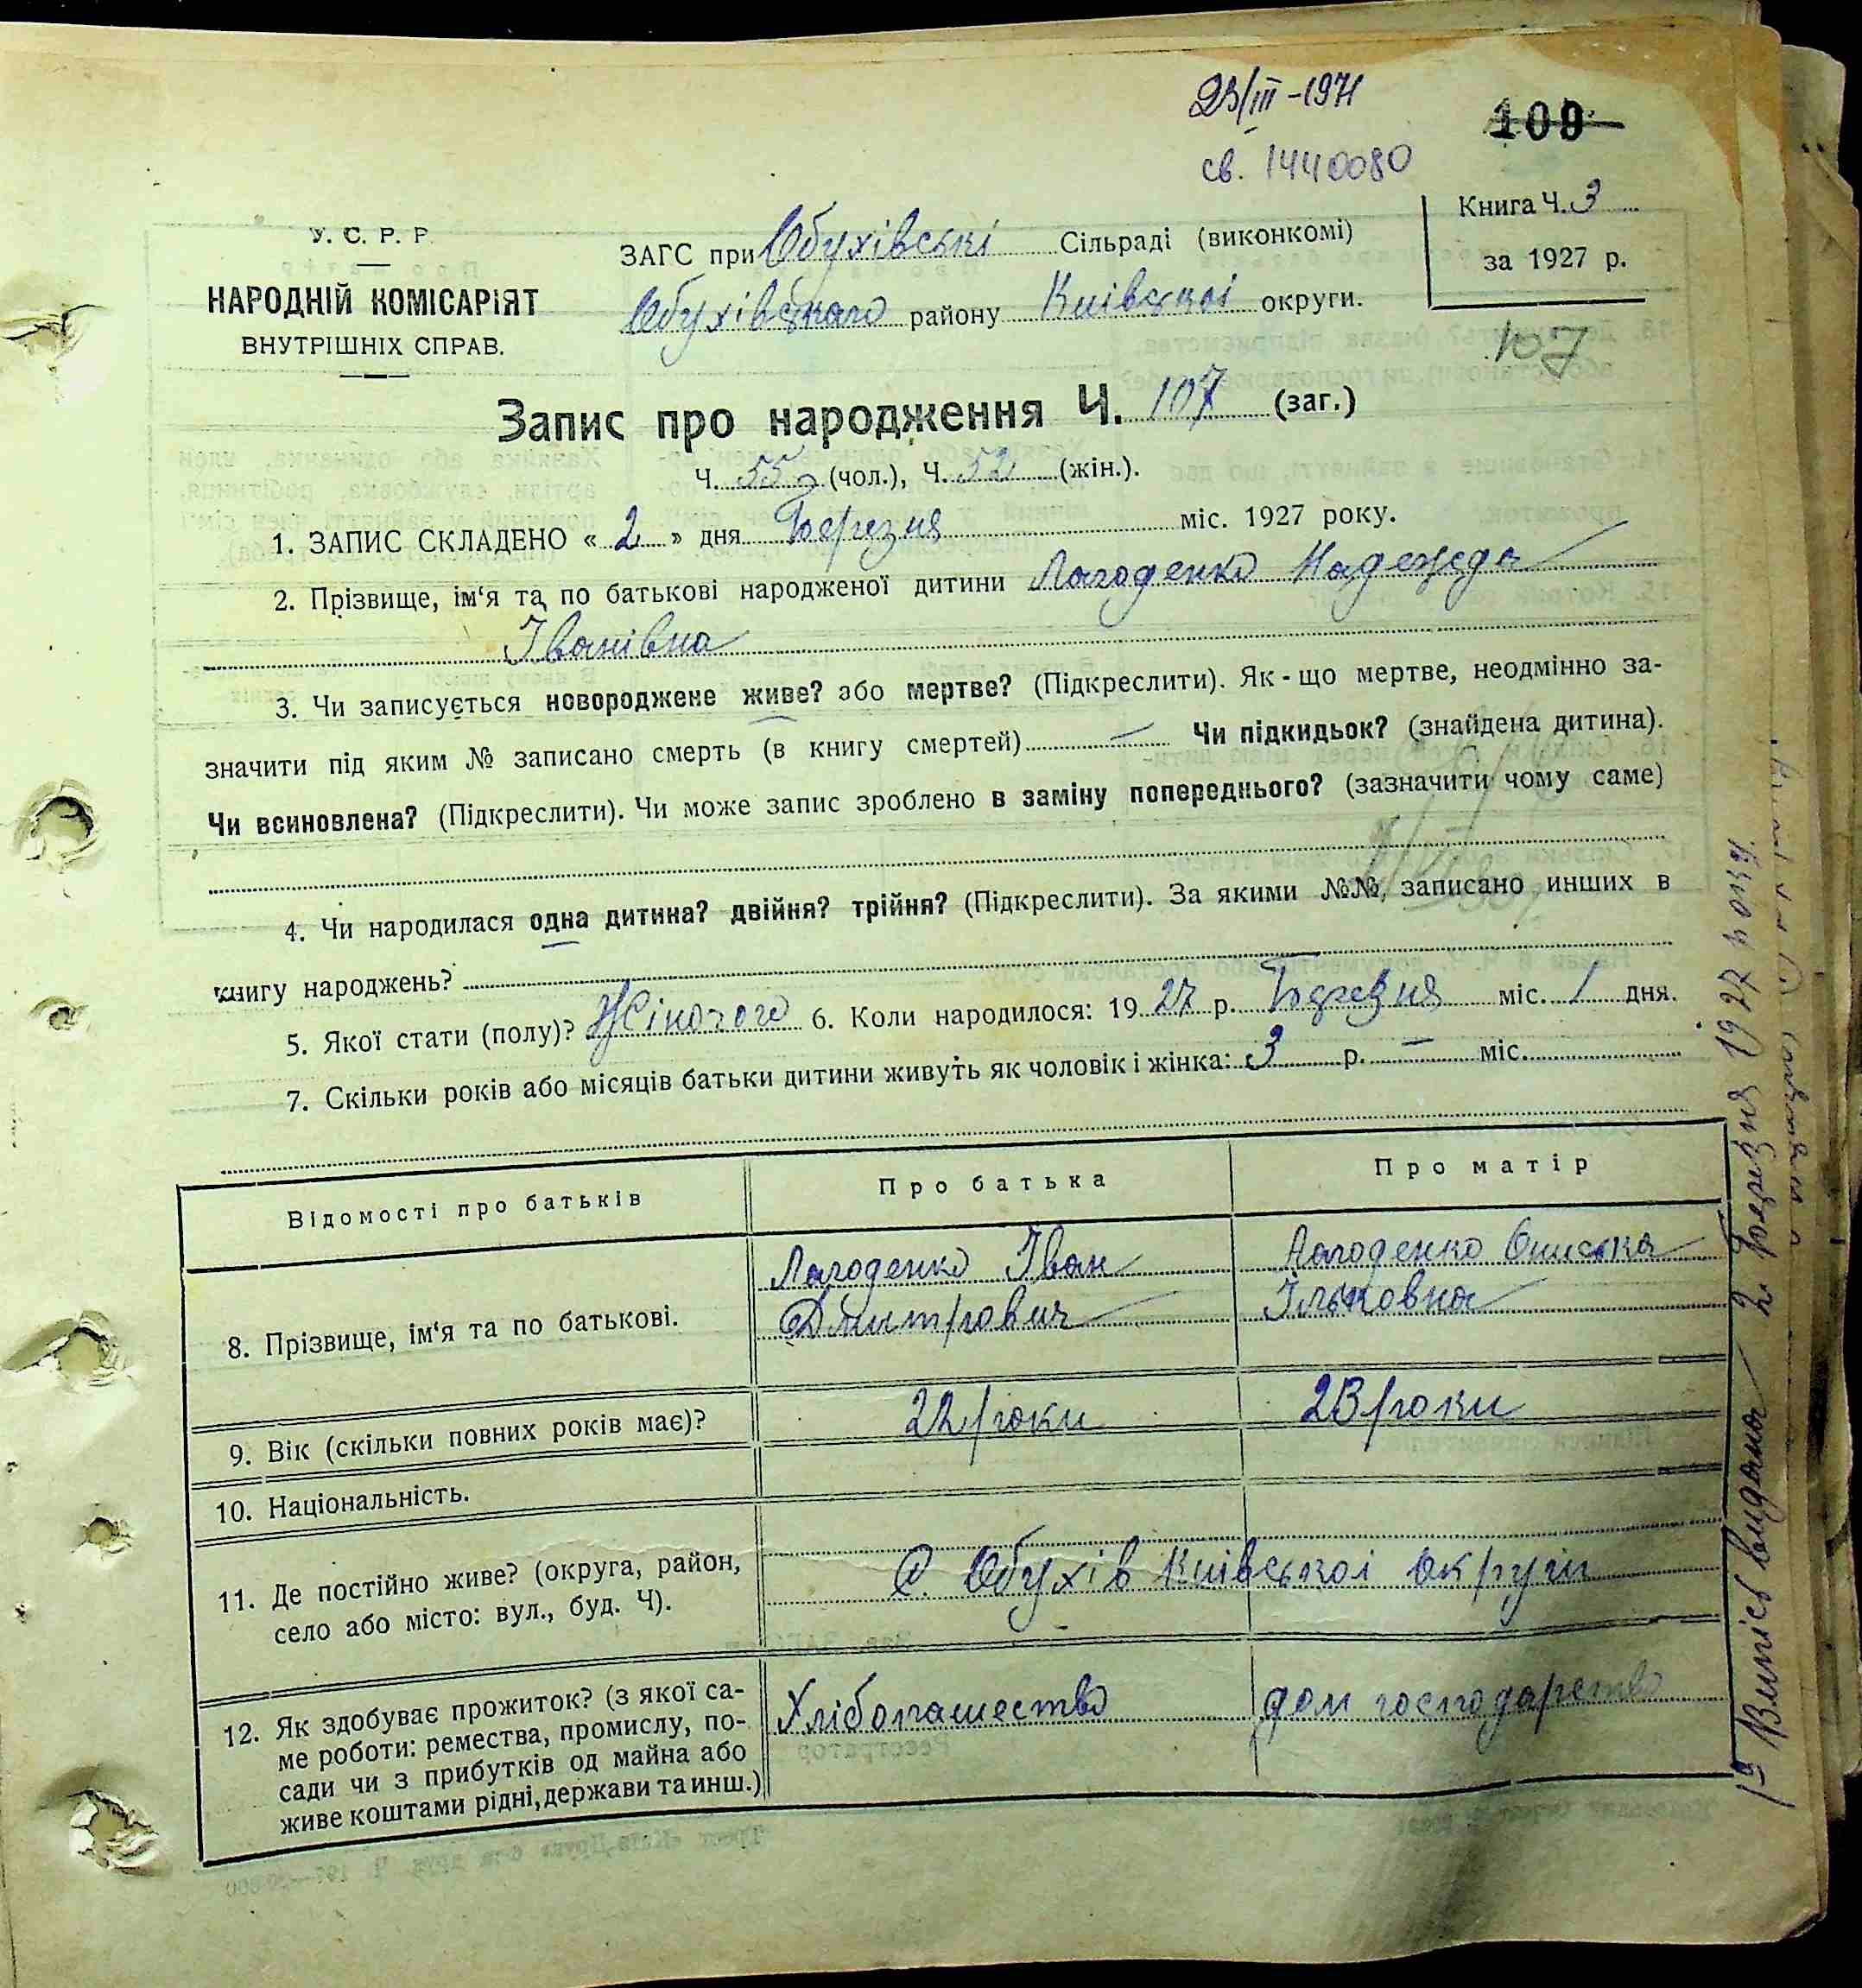 23/III-1971
109
св. 1440080
Книга Ч. 3
за 1927 р.
107
У. С. Р. Р.
НАРОДНІЙ КОМІСАРІЯТ
ВНУТРІШНІХ СПРАВ.
ЗАГС при Обухівські Сільраді (виконкомі)
Обухівського району Київської округи.
Запис про народження Ч. 107 (заг.)
Ч. 55 (чол.), Ч. 52 (жін.).
1. ЗАПИС СКЛАДЕНО « 2 » дня Березня міс. 1927 року.
2. Прізвище, ім‘я та по батькові народженої дитини Лагоденко Надежда
Іванівна
3. Чи записується новороджене живе? або мертве? (Підкреслити). Як-що мертве, неодмінно за-
значити під яким № записано смерть (в книгу смертей) — Чи підкидьок? (знайдена дитина).
Чи всиновлена? (Підкреслити). Чи може запис зроблено в заміну попереднього? (зазначити чому саме)
4. Чи народилася одна дитина? двійня? трійня? (Підкреслити). За якими №№, записано инших в
книгу народжень?
5. Якої стати (полу)? Жіночого 6. Коли народилося: 19 27 р. Березня міс. 1 дня.
7. Скільки років або місяців батьки дитини живуть як чоловік і жінка: 3 р. — міс.
Відомості про батьків
Про батька
Про матір
8. Прізвище, ім‘я та по батькові.
Лагоденко Іван
Дмитрович
Лагоденко Ониська
Ільковна
9. Вік (скільки повних років має)?
22 роки
23 роки
10. Національність.
11. Де постійно живе? (округа, район,
село або місто: вул., буд. Ч).
С. Обухів Київської округи
12. Як здобуває прожиток? (з якої са-
ме роботи: ремества, промислу, по-
сади чи з прибутків од майна або
живе коштами рідні, держави та инш.)
Хлібопашество
дом господарство
Випись видана 2 Березня 1927 року.